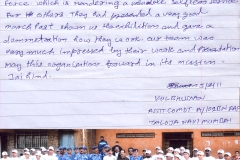 Force which is rendering a valuable selfless service
For the others. They had presented a very good
March Past shown us the exibition and gave a
demonstration how they work. our team was
very much impressed by their work and Presentation
May this organisation forward in its mission.
Jai Hind.
ASSTT COMDT
TALOJA NAVI MUMBAI